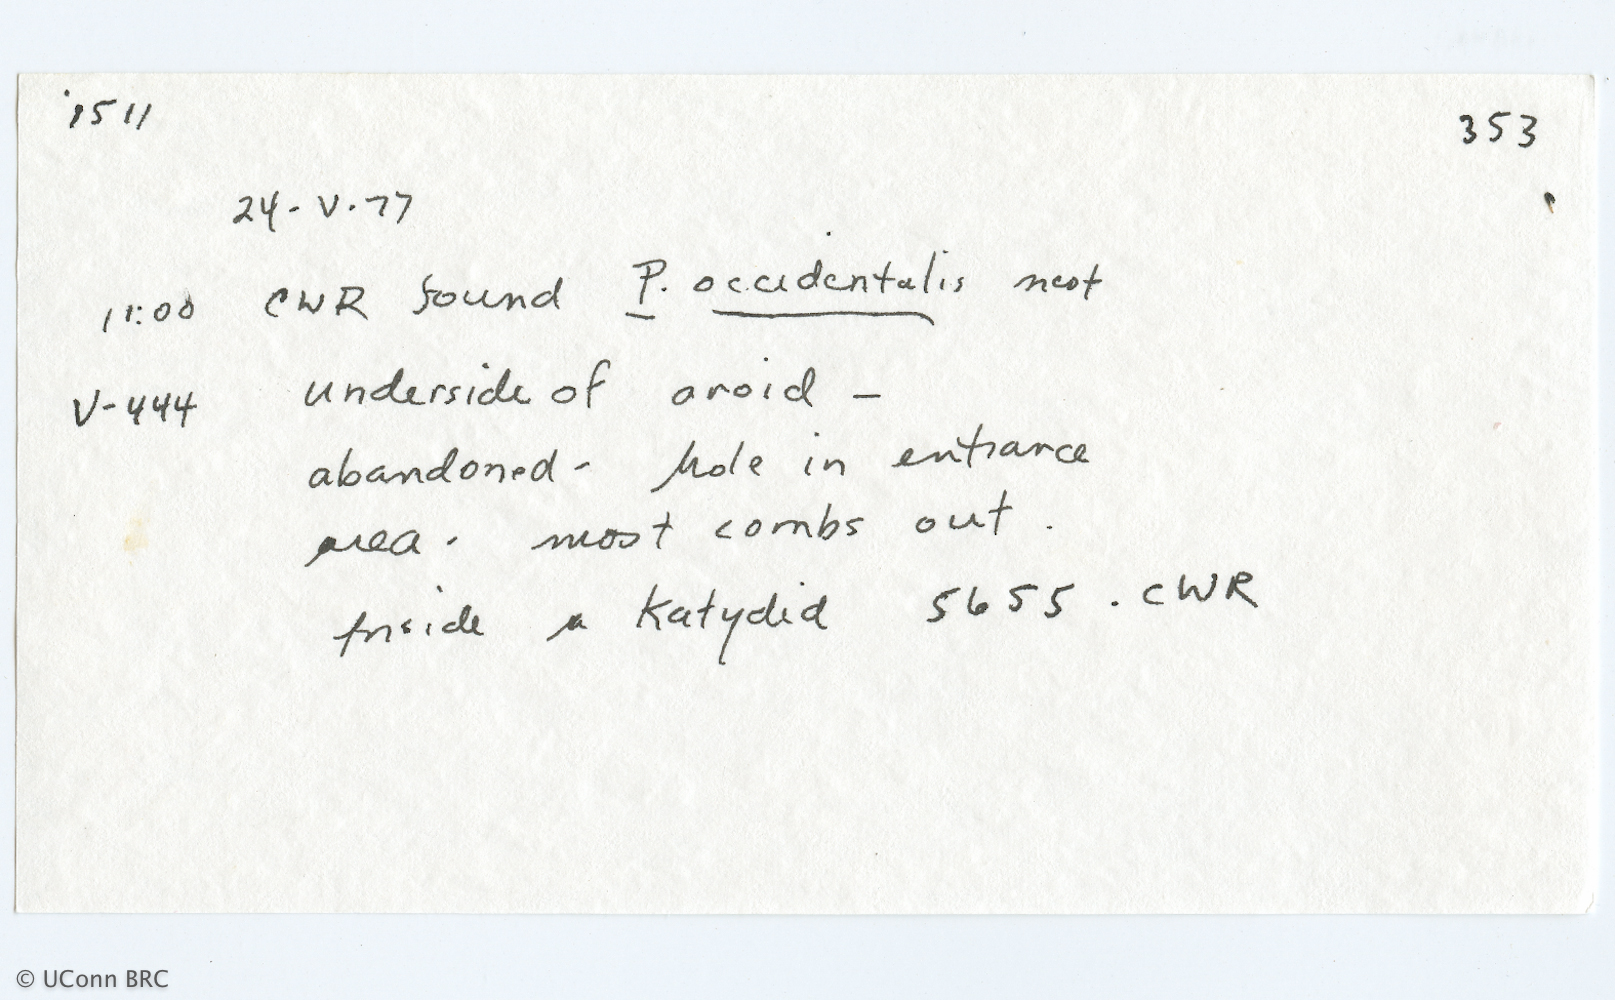 1511
353
24-V-77
11:00 CWR found P. occidentalis nest
V-444 underside of aroid -
abandoned - hole in entrance
area. most combs out.
Inside a Katydid 5655. CWR
© UConn BRC